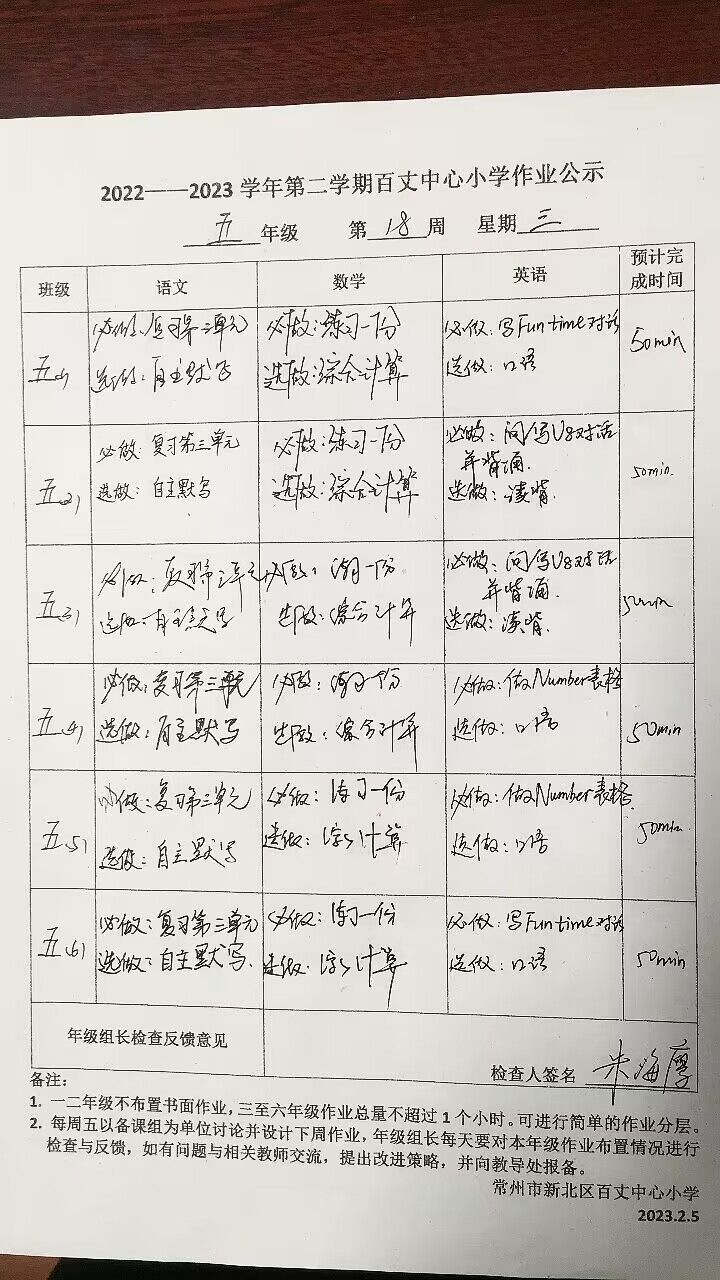 2022——2023 学年第二学期百丈中心小学作业公示
五 年级 第 18 周 星期 三
班级 语文 数学 英语 预计完成时间
五(1) 必做:复习第三单元 必做:练习一份 必做:写Fun time对话 50min
选做:自主默写 选做:综合计算 选做:口语
五(2) 必做:复习第三单元 必做:练习一份 必做:问写U8对话 50min
并背诵.
选做:自主默写 选做:综合计算 选做:读背.
五(3) 必做:复习第三单元 必做:练习一份 必做:问写U8对话 50min
并背诵.
选做:自主默写 选做:综合计算 选做:读背.
五(4) 必做:复习第三单元 必做:练习一份 必做:做Number表格 50min
选做:自主默写 选做:综合计算 选做:口语
五(5) 必做:复习第三单元 必做:练习一份 必做:做Number表格. 50min
选做:自主默写 选做:计算 选做:口语
五(6) 必做:复习第三单元 必做:练习一份 必做:写Fun time对话 50min
选做:自主默写. 选做:计算 选做:口语
年级组长检查反馈意见
检查人签名 朱海
备注:
1. 一二年级不布置书面作业,三至六年级作业总量不超过 1 个小时。可进行简单的作业分层。
2. 每周五以备课组为单位讨论并设计下周作业,年级组长每天要对本年级作业布置情况进行
检查与反馈,如有问题与相关教师交流,提出改进策略,并向教导处报备。
常州市新北区百丈中心小学
2023.2.5